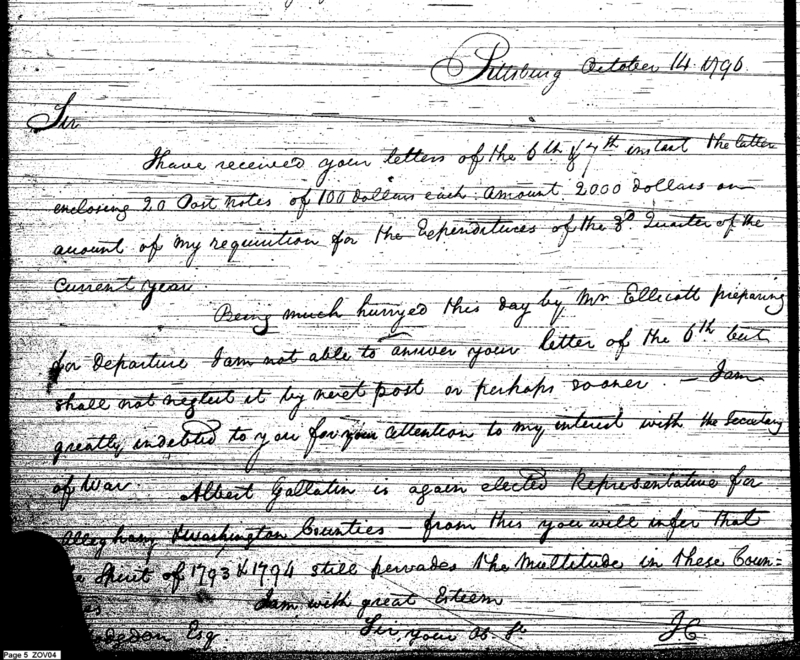 Pittsburg October 14. 1796.
Sir
I have received your letters of the 6th & 7th instant the latter
enclosing 20 Post notes of 100 dollars each. Amount 2000 dollars on
amount of my requisition for the Expenditures of the 3d. Quarter of the
Current year.
Being much hurryed this day by Mr. Ellicott preparing
for departure I am not able to answer your letter of the 6th but
shall not neglect it by next post or perhaps sooner. — I am
greatly indebted to you for your attention to my interest with the Secretary
of War. Albert Gallatin is again elected Representative for
Alleghany & Washington Counties — from this you will infer that
Spirit of 1793 & 1794 still pervades the Multitude in these Coun=
I am with great Esteem
Esq. Sir your Ob St. JC
Page 5 ZOV04